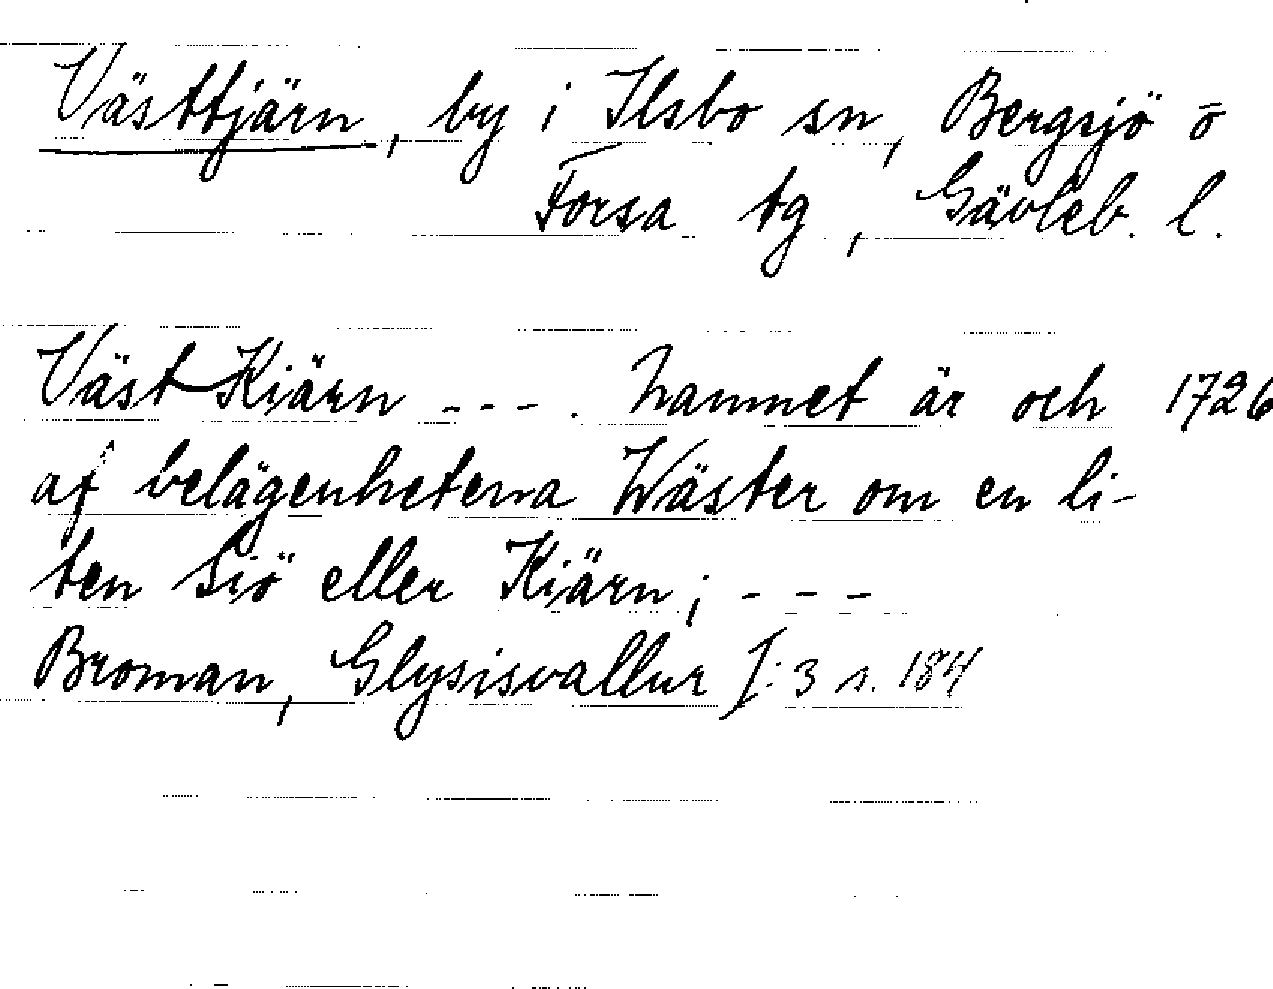 Västtjärn, by i Ilsbo sn, Bergsjö o
Forsa tg, Gävleb. l.
Väst Kiärn - - - . Namnet är och 1726
af belägenheterna Wäster om en li-
ten Siö eller Kiärn; - - -
Broman, Glysisvallur I:3 s. 184